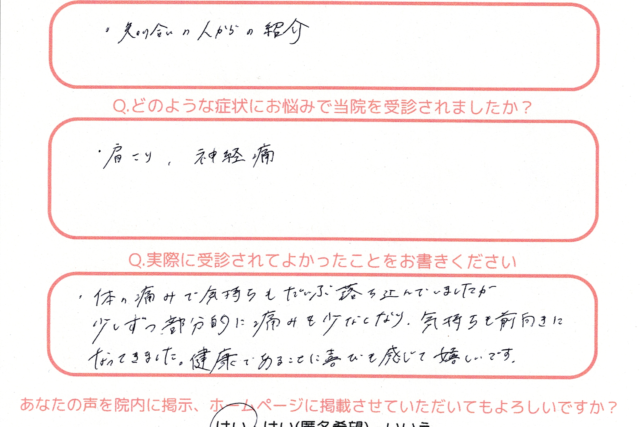 ・知り合いの人からの紹介
Q.どのような症状にお悩みで当院を受診されましたか？
・肩こり、神経痛
Q.実際に受診されてよかったことをお書きください
・体の痛みで気持ちもだいぶ落ち込んでいましたが
少しずつ部分的に痛みも少なくなり、気持ちも前向きに
なってきました。健康であることに喜びを感じて嬉しいです。
あなたの声を院内に掲示、ホームページに掲載させていただいてもよろしいですか？
はい はい(匿名希望) いいえ